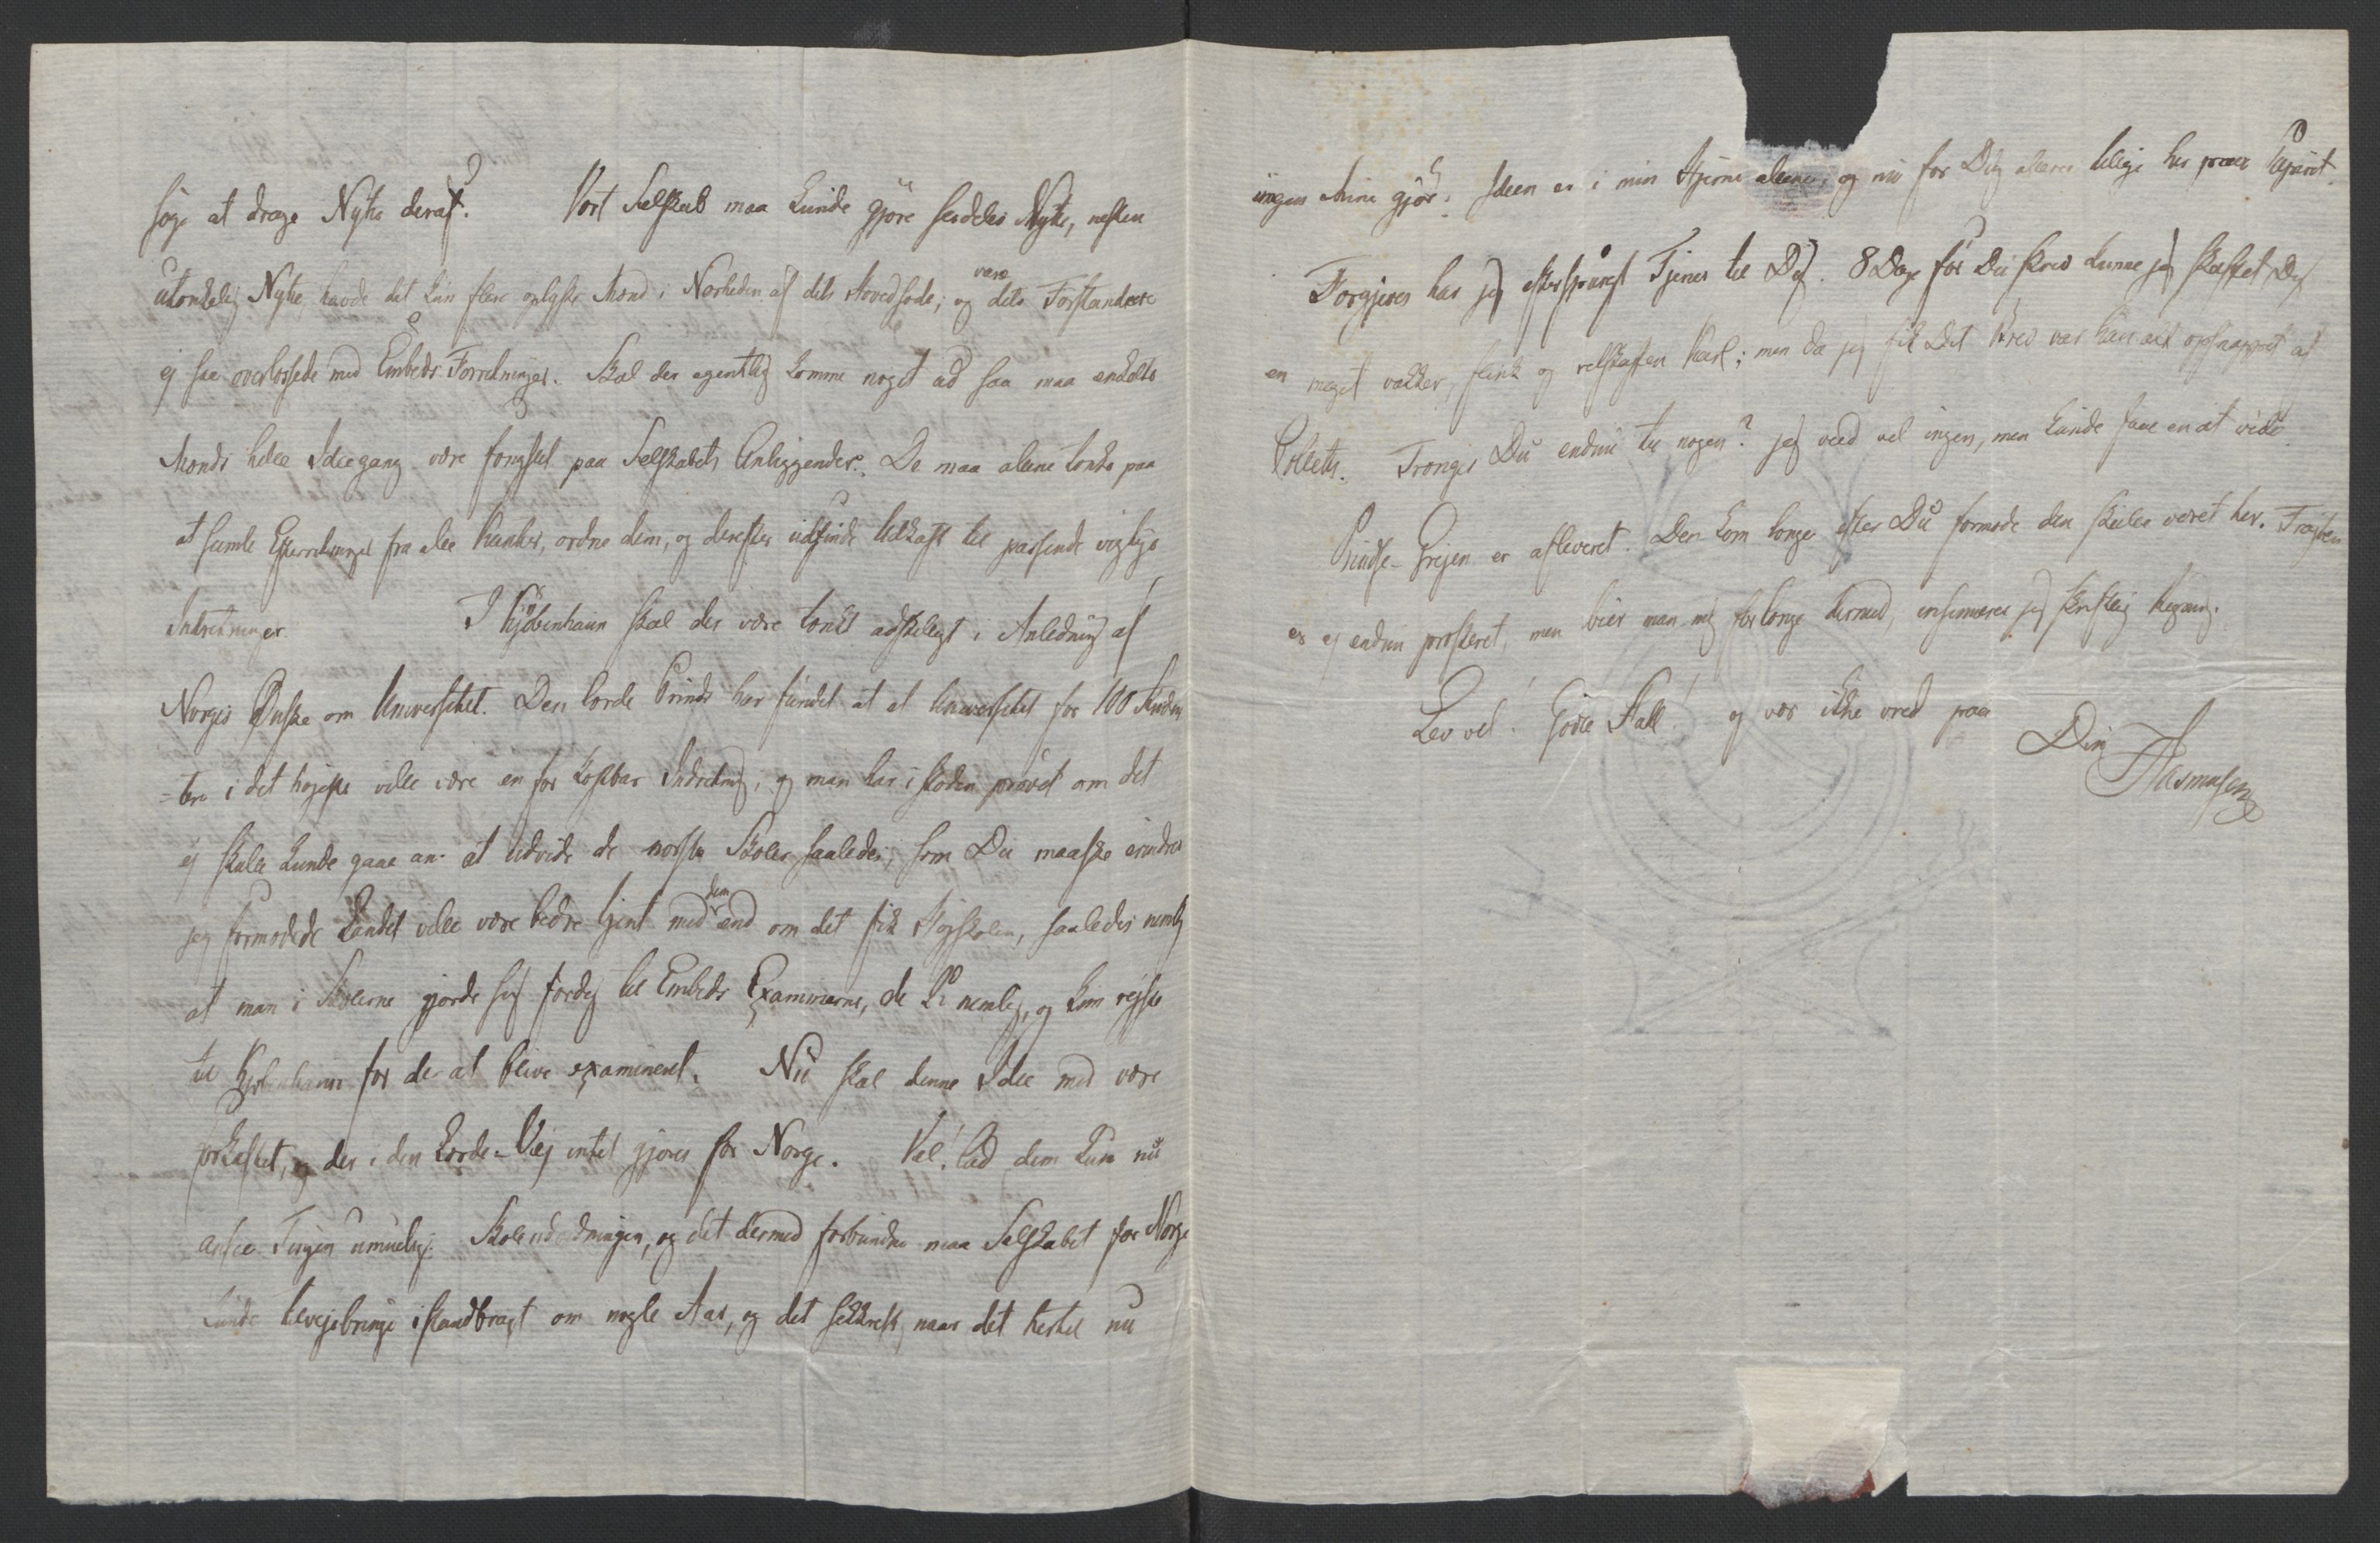 søge at drage Nytte deraf? Vort Selskab maa kunde gjöre serdeles Nytte, nesten
utonkelig Nytte, havde det kun flere oplyste Mond i Norheden af dets Hovedsode; og dets være Forstandere
ej saa overlossede med Embeds-Forretninger. Skal der egentlig komme noget ud saa maa enkelte
Monds hele Ideegang være fongslet paa Selskabets Anliggender. De maa alene tonke paa
at samle Efterretninger fra alle Kanter, ordne dem, og derefter udfinde Udkast til passende vigtige
Indretninger I Kjøbenhavn skal der være tonkt adskeligt i Anledning af
Norges Ønske om Universitet. Den lorde Prinds har fundet at et Universitet for 100 Studen
-tere i det højeste ville være en for kostbar Indretning; og man har isteden prövet om det
ej skulle kunde gaae an at udvide de norske Skoler saaledes, som Du maaske erindrer
jeg formodede Landet ville være bedre tjent med dem end om det fik Højskolen, saaledes nemlig
at man i Skolerne gjorde sig færdig til Embeds Examinerne, de nemlig, og kun rejste
til Kjøbenhavn for der at blive examineret. Nu skal denne Idee med være
forkastet, og der i den Lorde-Vej intet gjøres for Norge. Vel! lad dem kun nu
ansee Tingen umuelig. Skoleudvidningen, og det dermed forbundne maa Selskabet for Norge
kunde tilvejebringe istandbragt om nogle Aar, og det sikkrest, naar det hertil nu
ingen Mine gjör. Ideen er i min Hjerne alene, og nu for Dig allene tillige her paa Papiret.
Forgjeves har jeg efterspurgt Tjener til Dig. 8 Dage för Du skrev kunne jeg skaffet Dig
en meget vakker, flink og retskaffen Karl; men da jeg fik Dit Brev var han alt opsnappet af
Colletts. Tronger Du endnu til nogen? jeg veed vel ingen, men kunde faae en at vide
Prindse-Grejen er afleveret. Den kom longe efter Du formode den skulle været her. Fragten
er ej endnu prosteret, men bier man mig for longe dermed, insinuerer jeg skriftlig Regning.
Lev vel! Gode Fall! og vær ikke vred paa
Din
Rasmusen